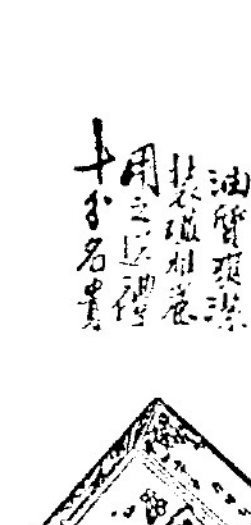 油質頂潔
裝璜相差
用之送禮
十分名貴